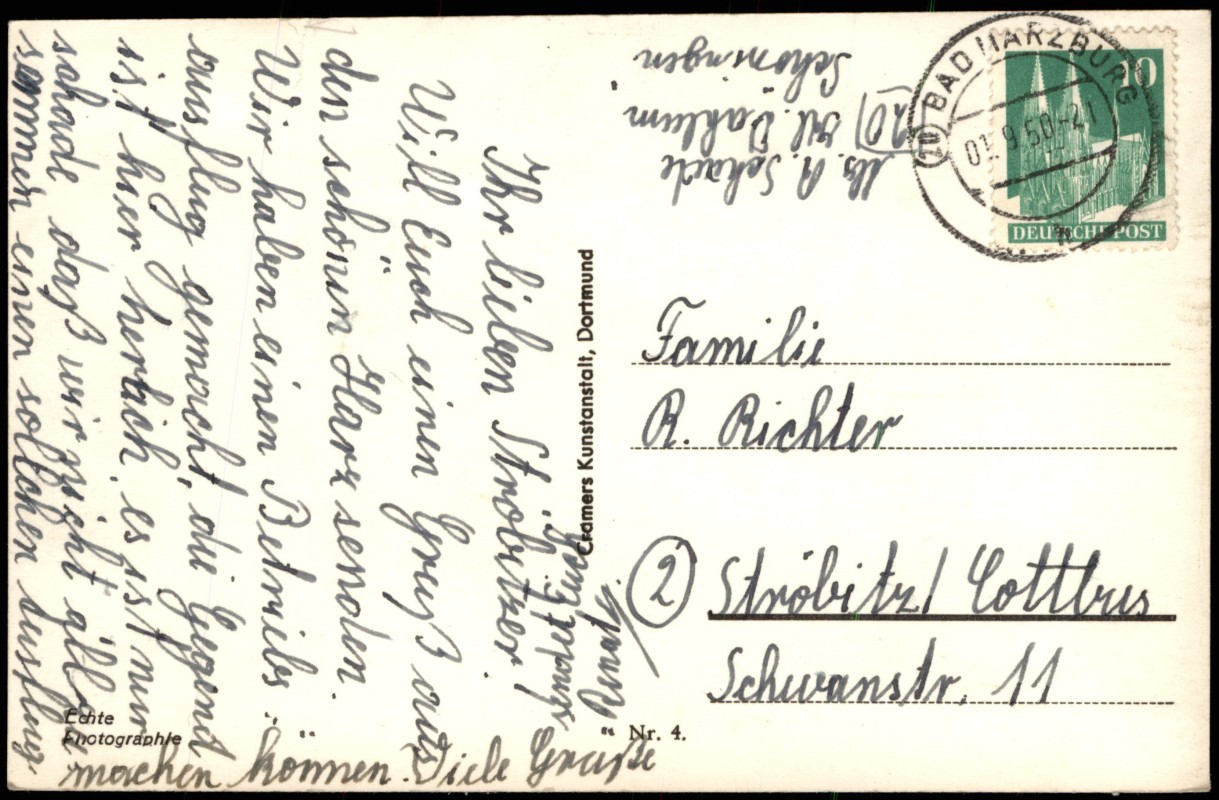 Ihr lieben Ströbitzer!
Will Euch einen Gruß aus
den schönen Harz senden.
Wir haben einen Betriebs-
ausflug gemacht, die Gegend
ist hier herlich, es ist nur
schade daß wir nicht alle zu
sammen einen solchen Ausflug
machen können. Viele Grüße
Euch
Cramers Kunstanstalt, Dortmund
Echte
Photographie
Nr. 4.
Abs. R. Schade
(20) Kl. Dahlum
Schöningen
BAD HARZBURG
9.50-21
10
DEUTSCHE POST
Familie
R. Richter
(2) Ströbitz/Cottbus
Schwanstr. 11